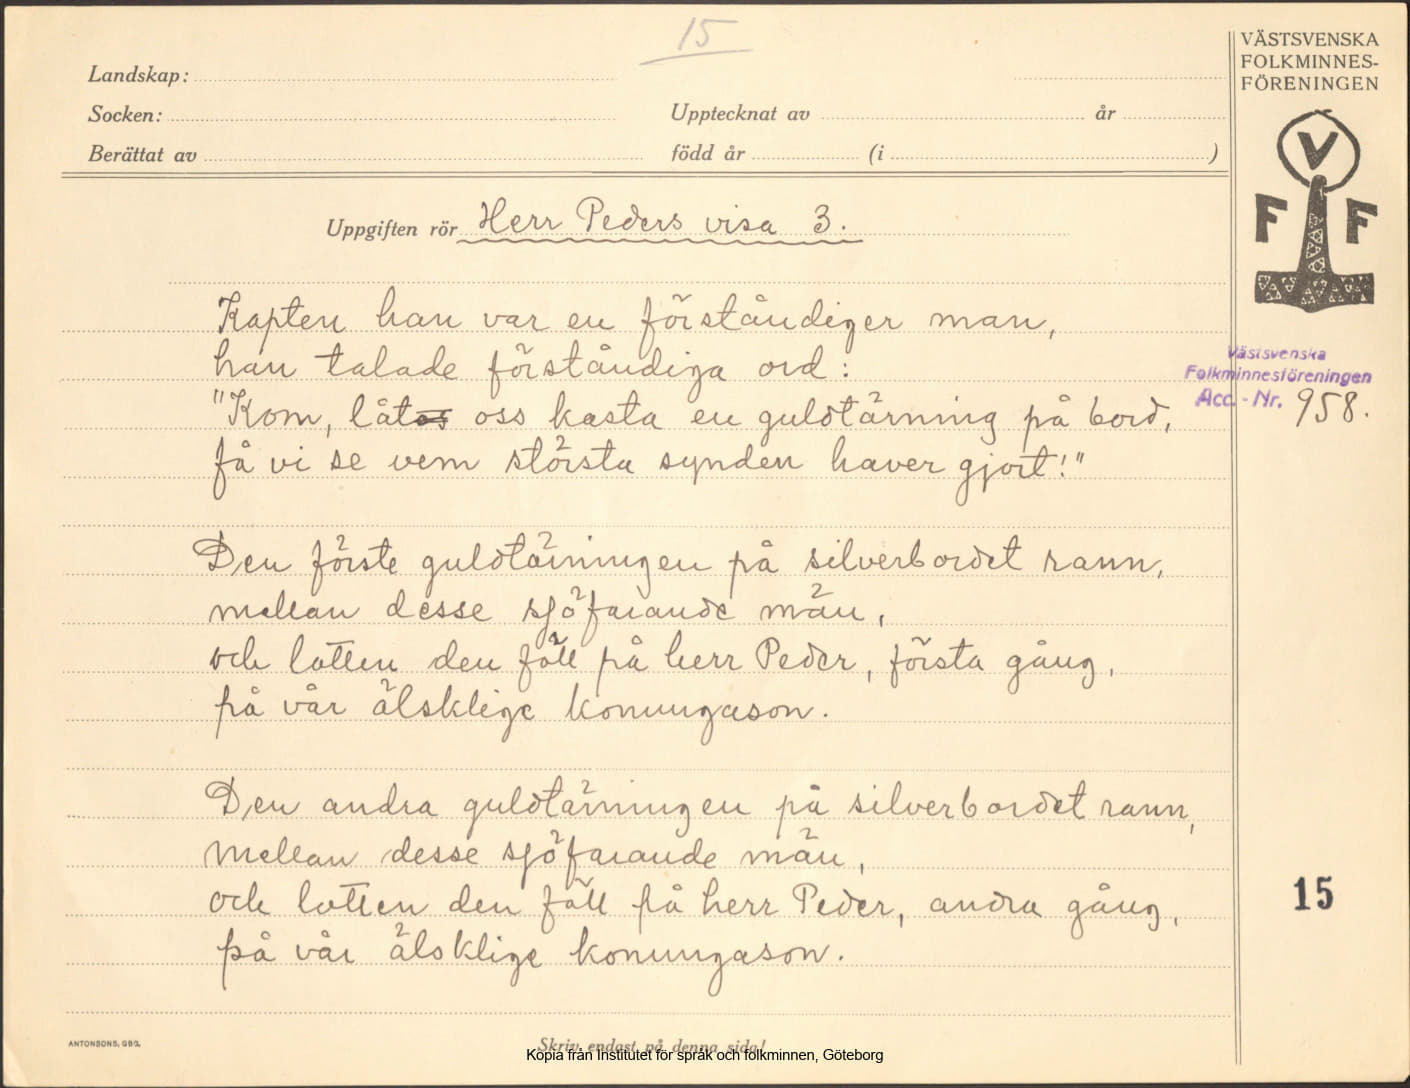 15
VÄSTSVENSKA
FOLKMINNES-
FÖRENINGEN
Landskap:
Socken:
Upptecknat av
år
Berättat av
född år
(i
)
V
F F
Uppgiften rör Herr Peders visa 3.
Kapten han var en förståndiger man,
han talade förståndiga ord:
"Kom, låtos oss kasta en guldtärning på bord,
få vi se vem största synden haver gjort!"
Västsvenska
Folkminnesföreningen
Acc.-Nr. 958.
Den förste guldtärningen på silverbordet rann,
mellan desse sjöfarande män,
och lotten den föll på herr Peder, första gång,
på vår älsklige konungason.
Den andra guldtärningen på silverbordet rann,
mellan desse sjöfarande män,
och lotten den föll på herr Peder, andra gång,
på vår älsklige konungason.
15
ANTONSONS, GBG.
Skriv endast på denna sida!
Kopia från Institutet för språk och folkminnen, Göteborg